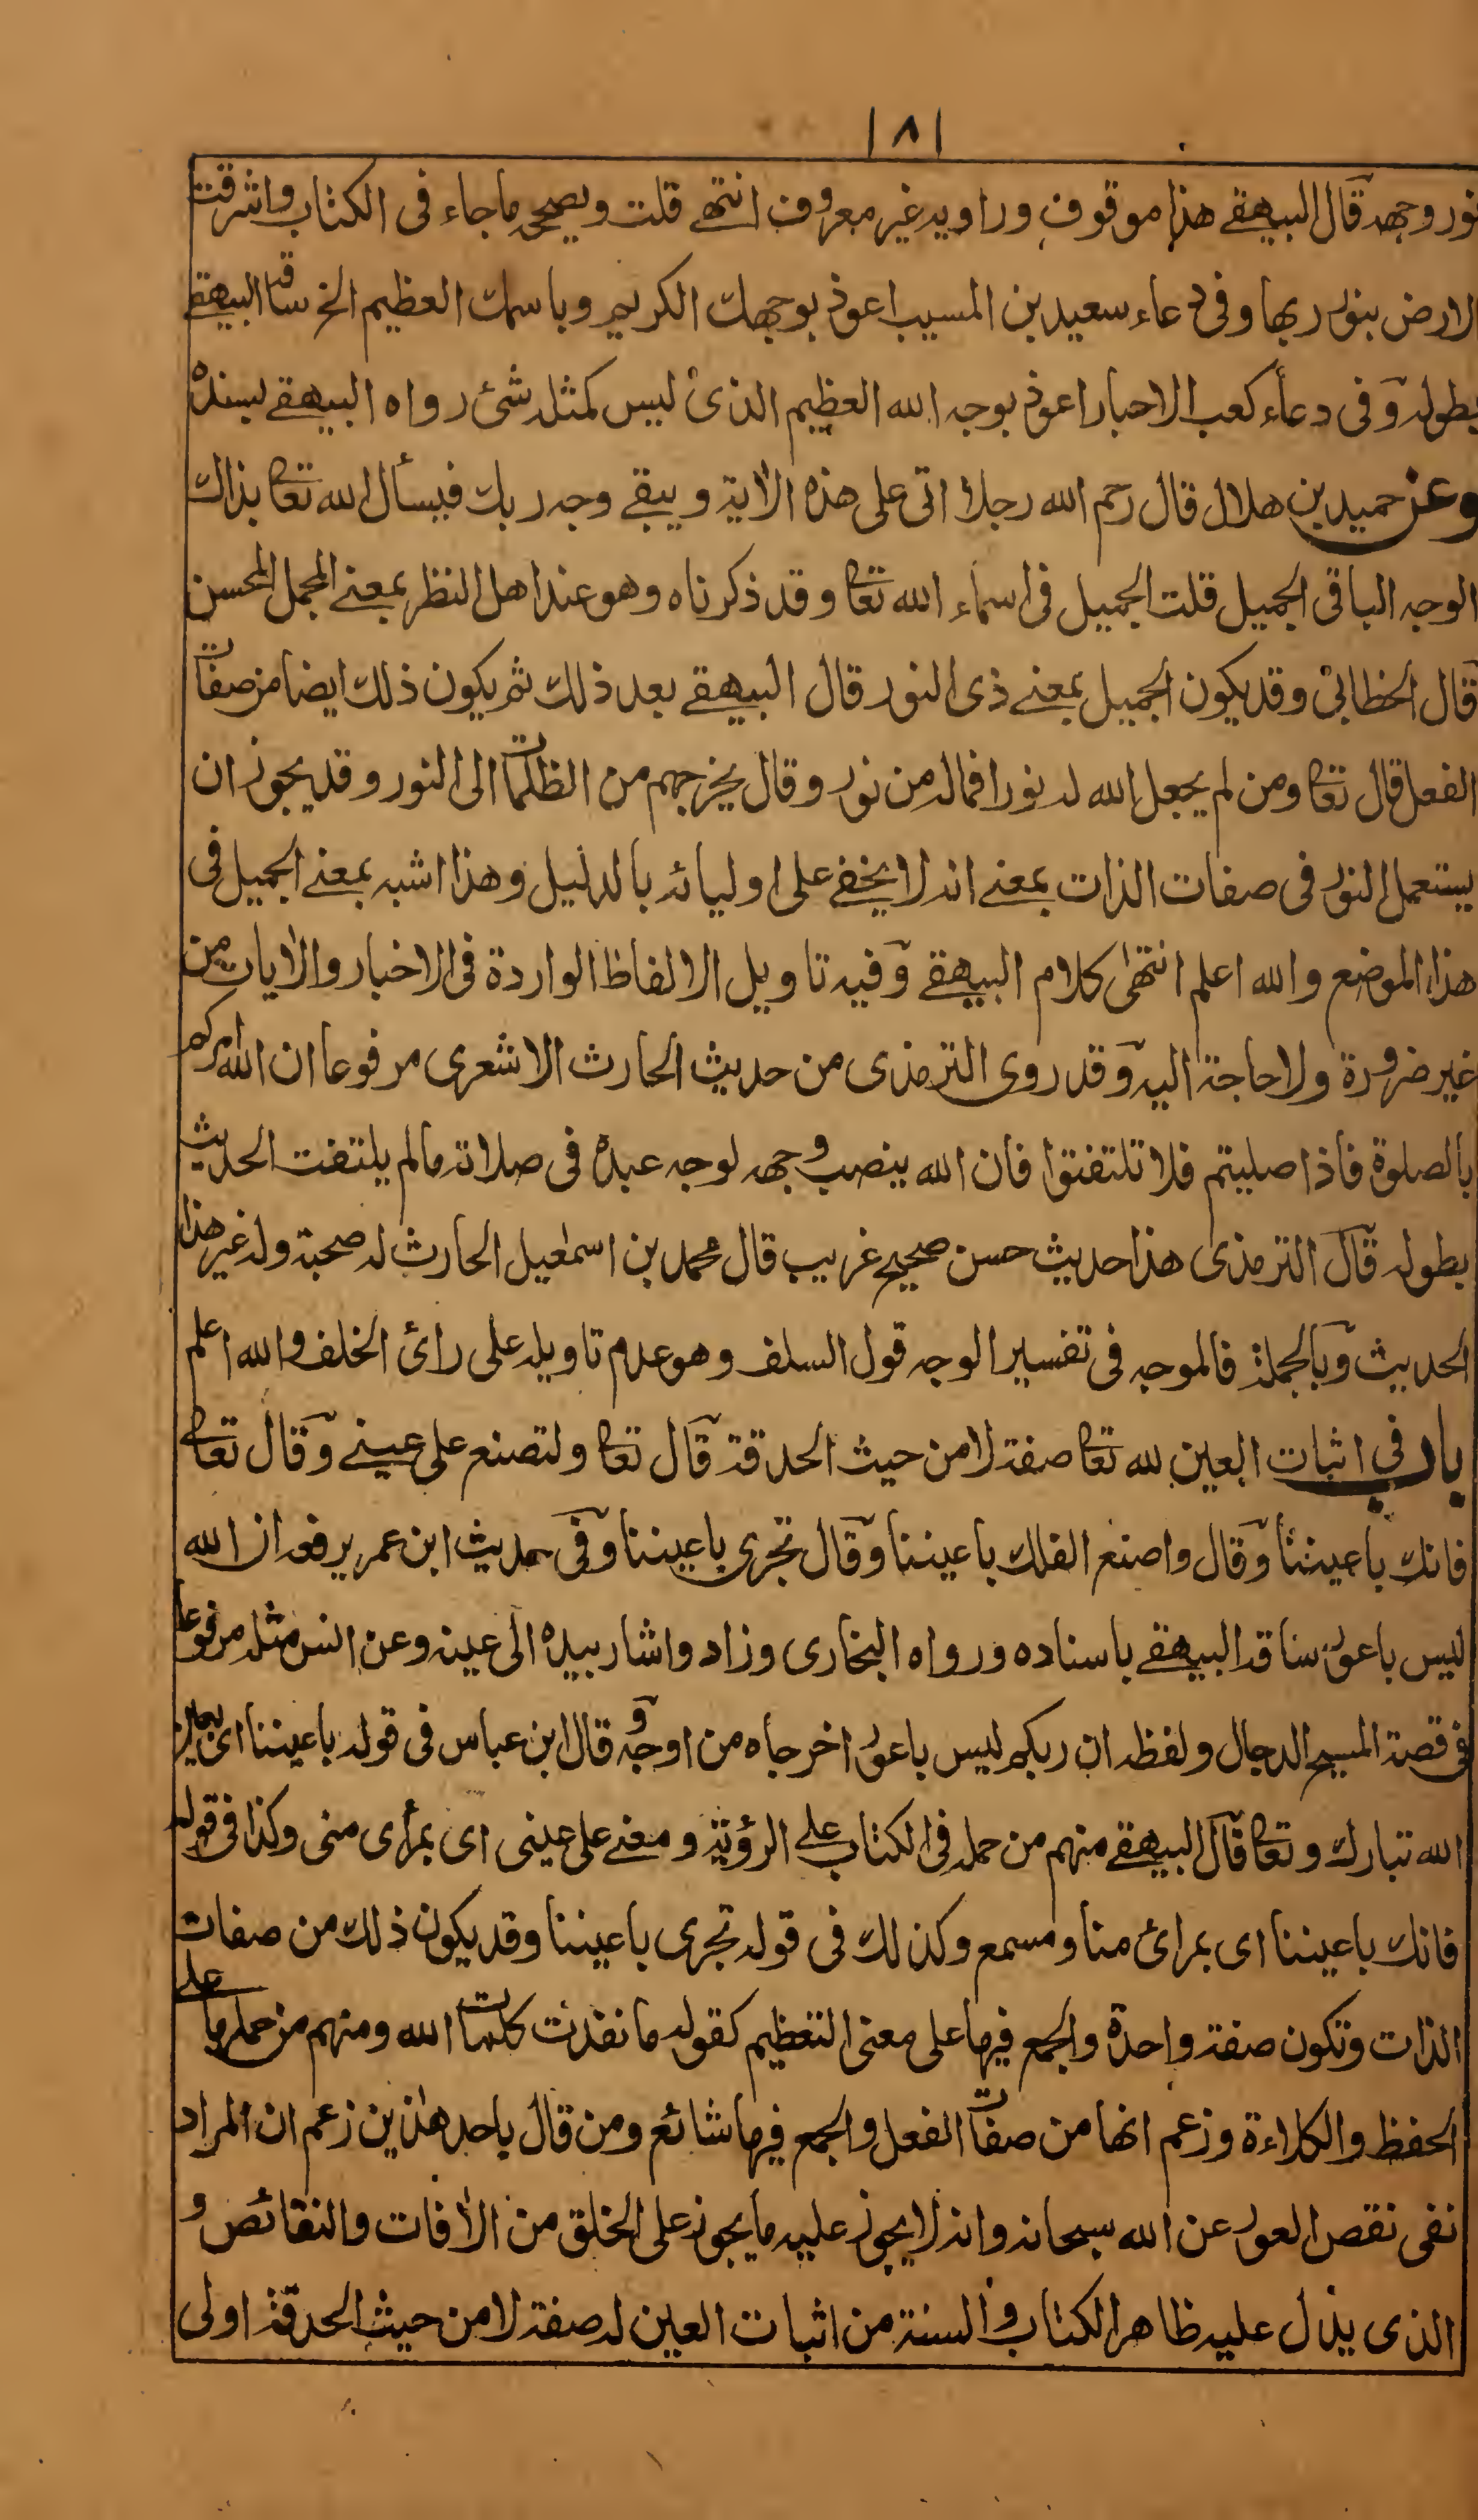 ١٨١
نور وجهه قال البيهقے هذا موقوف وراويه غير معروف انتهے قلت ويصححه ما جاء فى الكتاب واشرقت
الارض بنور ربها وفى دعاء سعيد بن المسيب اعوذ بوجهك الكريم وباسمك العظيم الخ ساقه البيهقے
بطوله وفى دعاء كعب الاحبار اعوذ بوجه الله العظيم الذى ليس كمثله شئ رواه البيهقے بسنده
وعن حميد بن هلال قال رحم الله رجلا اتى على هذه الاٰية ويبقے وجه ربك فيسأل الله تعا بذاك
الوجه الباقى الجميل قلت الجميل فى اسماء الله تعا وقد ذكرناه وهو عند اهل النظر بمعنے المجمل المحسن
قال الخطابى وقد يكون الجميل بمعنے ذى النور قال البيهقے بعد ذلك ثم يكون ذلك ايضا من صفات
الفعل قال تعا ومن لم يجعل الله له نورا فماله من نور وقال يخرجهم من الظلمات الى النور وقد يجوز ان
يستعمل النور فى صفات الذات بمعنے انه لا يخفے على اوليائه بالدليل وهذا اشبه بمعنے الجميل فى
هذا الموضع والله اعلم انتهى كلام البيهقے وفيه تاويل الالفاظ الواردة فى الاخبار والاٰيات من
غير ضرورة ولا حاجة اليه وقد روى الترمذى من حديث الحارث الاشعرى مرفوعا ان الله امركم
بالصلوة فاذا صليتم فلا تلتفتوا فان الله ينصب وجهه لوجه عبده فى صلاته مالم يلتفت الحديث
بطوله قال الترمذى هذا حديث حسن صحيح غريب قال محمد بن اسمٰعيل الحارث له صحبة وله غير هذا
الحديث وبالجملة فالموجه فى تفسير الوجه قول السلف وهو عدم تاويله على رائ الخلف والله اعلم
باب فى اثبات العين لله تعا صفة لا من حيث الحدقة قال تعا ولتصنع على عينے وقال تعا
فانك باعيننا وقال واصنع الفلك باعيننا وقال تجرى باعيننا وفى حديث ابن عمر يرفعه ان الله
ليس باعور ساقه البيهقے باسناده ورواه البخارى وزاد واشار بيده الى عينه وعن انس مثله مرفوعا
فى قصة المسيح الدجال ولفظه ان ربكم ليس باعور اخرجاه من اوجه وقال ابن عباس فى قوله باعيننا اى بعين
الله تبارك وتعا قال البيهقے منهم من حمله فى الكتاب علے الرؤية ومعنے على عينى اى بمرأى منى وكذا فى قوله
فانك باعيننا اى بمرائ منا ومسمع وكذلك فى قوله تجرى باعيننا وقد يكون ذلك من صفات
الذات وتكون صفة واحدة والجمع فيها على معنى التعظيم كقوله ما نفدت كلمات الله ومنهم من حملها علے
الحفظ والكلاءة وزعم انها من صفات الفعل والجمع فيها شائع ومن قال باحد هٰذين زعم ان المراد
نفى نقص العور عن الله سبحانه وانه لا يجوز عليه ما يجوز على الخلق من الاٰفات والنقائص و
الذى يدل عليه ظاهر الكتاب والسنة من اثبات العين له صفة لا من حيث الحدقة اولى